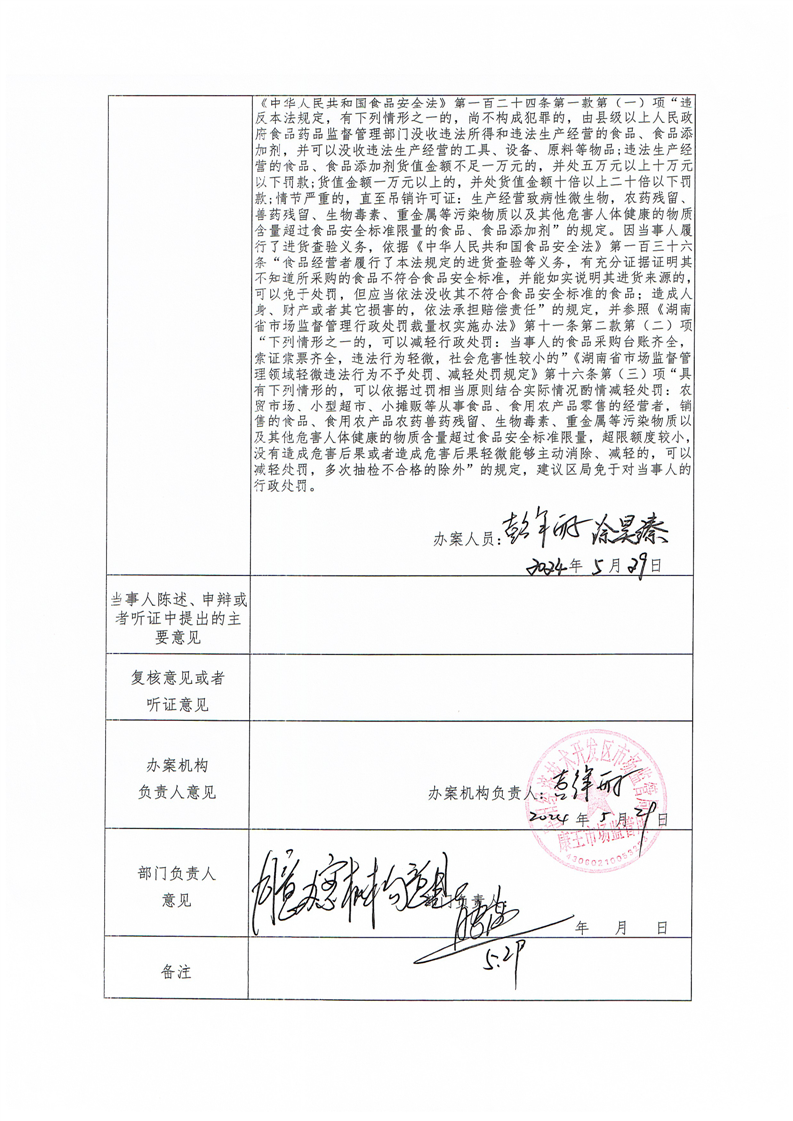 《中华人民共和国食品安全法》第一百二十四条第一款第（一）项“违
反本法规定，有下列情形之一的，尚不构成犯罪的，由县级以上人民政
府食品药品监督管理部门没收违法所得和违法生产经营的食品、食品添
加剂，并可以没收违法生产经营的工具、设备、原料等物品；违法生产经
营的食品、食品添加剂货值金额不足一万元的，并处五万元以上十万元
以下罚款；货值金额一万元以上的，并处货值金额十倍以上二十倍以下罚
款；情节严重的，直至吊销许可证：生产经营致病性微生物，农药残留、
兽药残留、生物毒素、重金属等污染物质以及其他危害人体健康的物质
含量超过食品安全标准限量的食品、食品添加剂”的规定。因当事人履
行了进货查验义务，依据《中华人民共和国食品安全法》第一百三十六
条“食品经营者履行了本法规定的进货查验等义务，有充分证据证明其
不知道所采购的食品不符合食品安全标准，并能如实说明其进货来源的，
可以免于处罚，但应当依法没收其不符合食品安全标准的食品；造成人
身、财产或者其它损害的，依法承担赔偿责任”的规定，并参照《湖南
省市场监督管理行政处罚裁量权实施办法》第十一条第二款第（二）项
“下列情形之一的，可以减轻行政处罚：当事人的食品采购台账齐全，
索证索票齐全，违法行为轻微，社会危害性较小的”《湖南省市场监督管
理领域轻微违法行为不予处罚、减轻处罚规定》第十六条第（三）项“具
有下列情形的，可以依据过罚相当原则结合实际情况酌情减轻处罚：农
贸市场、小型超市、小摊贩等从事食品、食用农产品零售的经营者，销
售的食品、食用农产品农药兽药残留、生物毒素、重金属等污染物质以
及其他危害人体健康的物质含量超过食品安全标准限量，超限额度较小，
没有造成危害后果或者造成危害后果轻微能够主动消除、减轻的，可以
减轻处罚，多次抽检不合格的除外”的规定，建议区局免于对当事人的
行政处罚。
办案人员：
2024年 5月29日
当事人陈述、申辩或
者听证中提出的主
要意见
复核意见或者
听证意见
办案机构
负责人意见
办案机构负责人：
2024 年 5月29日
技术开发区市场监管
康王市场监管
部门负责人
意见
同意办案机构意见
门负责人
年 月 日
5.29
备注